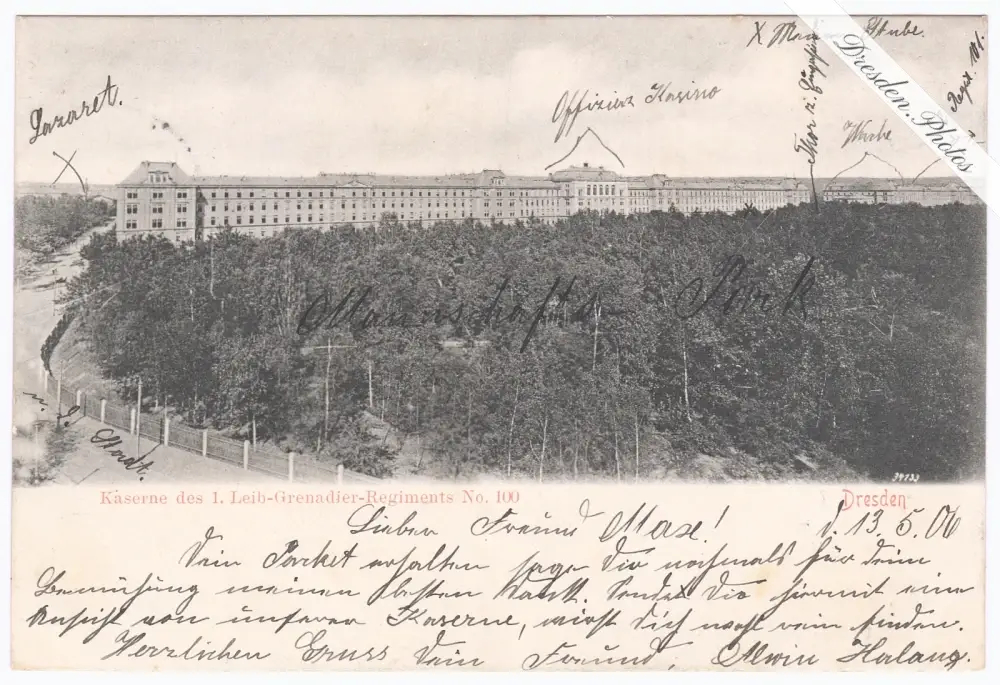 X Meine Stube.
Dresden.Photos
Regt. 101.
Lazaret.
Offizier Kasino
Thor z. Eingang
Wache
Mannschafts Park
n. d. Stadt.
34133
Kaserne des 1. Leib-Grenadier-Regiments No. 100
Dresden
Lieber Freund Max! d. 13.5.06
Dein Packet erhalten sage Dir nochmals für deine
Bemühung meinen besten Dank. Sende Dir hiermit eine
Ansicht von unserer Kaserne, wirst Dich wohl rein finden.
Herzlichen Gruss Dein Freund, Alwin